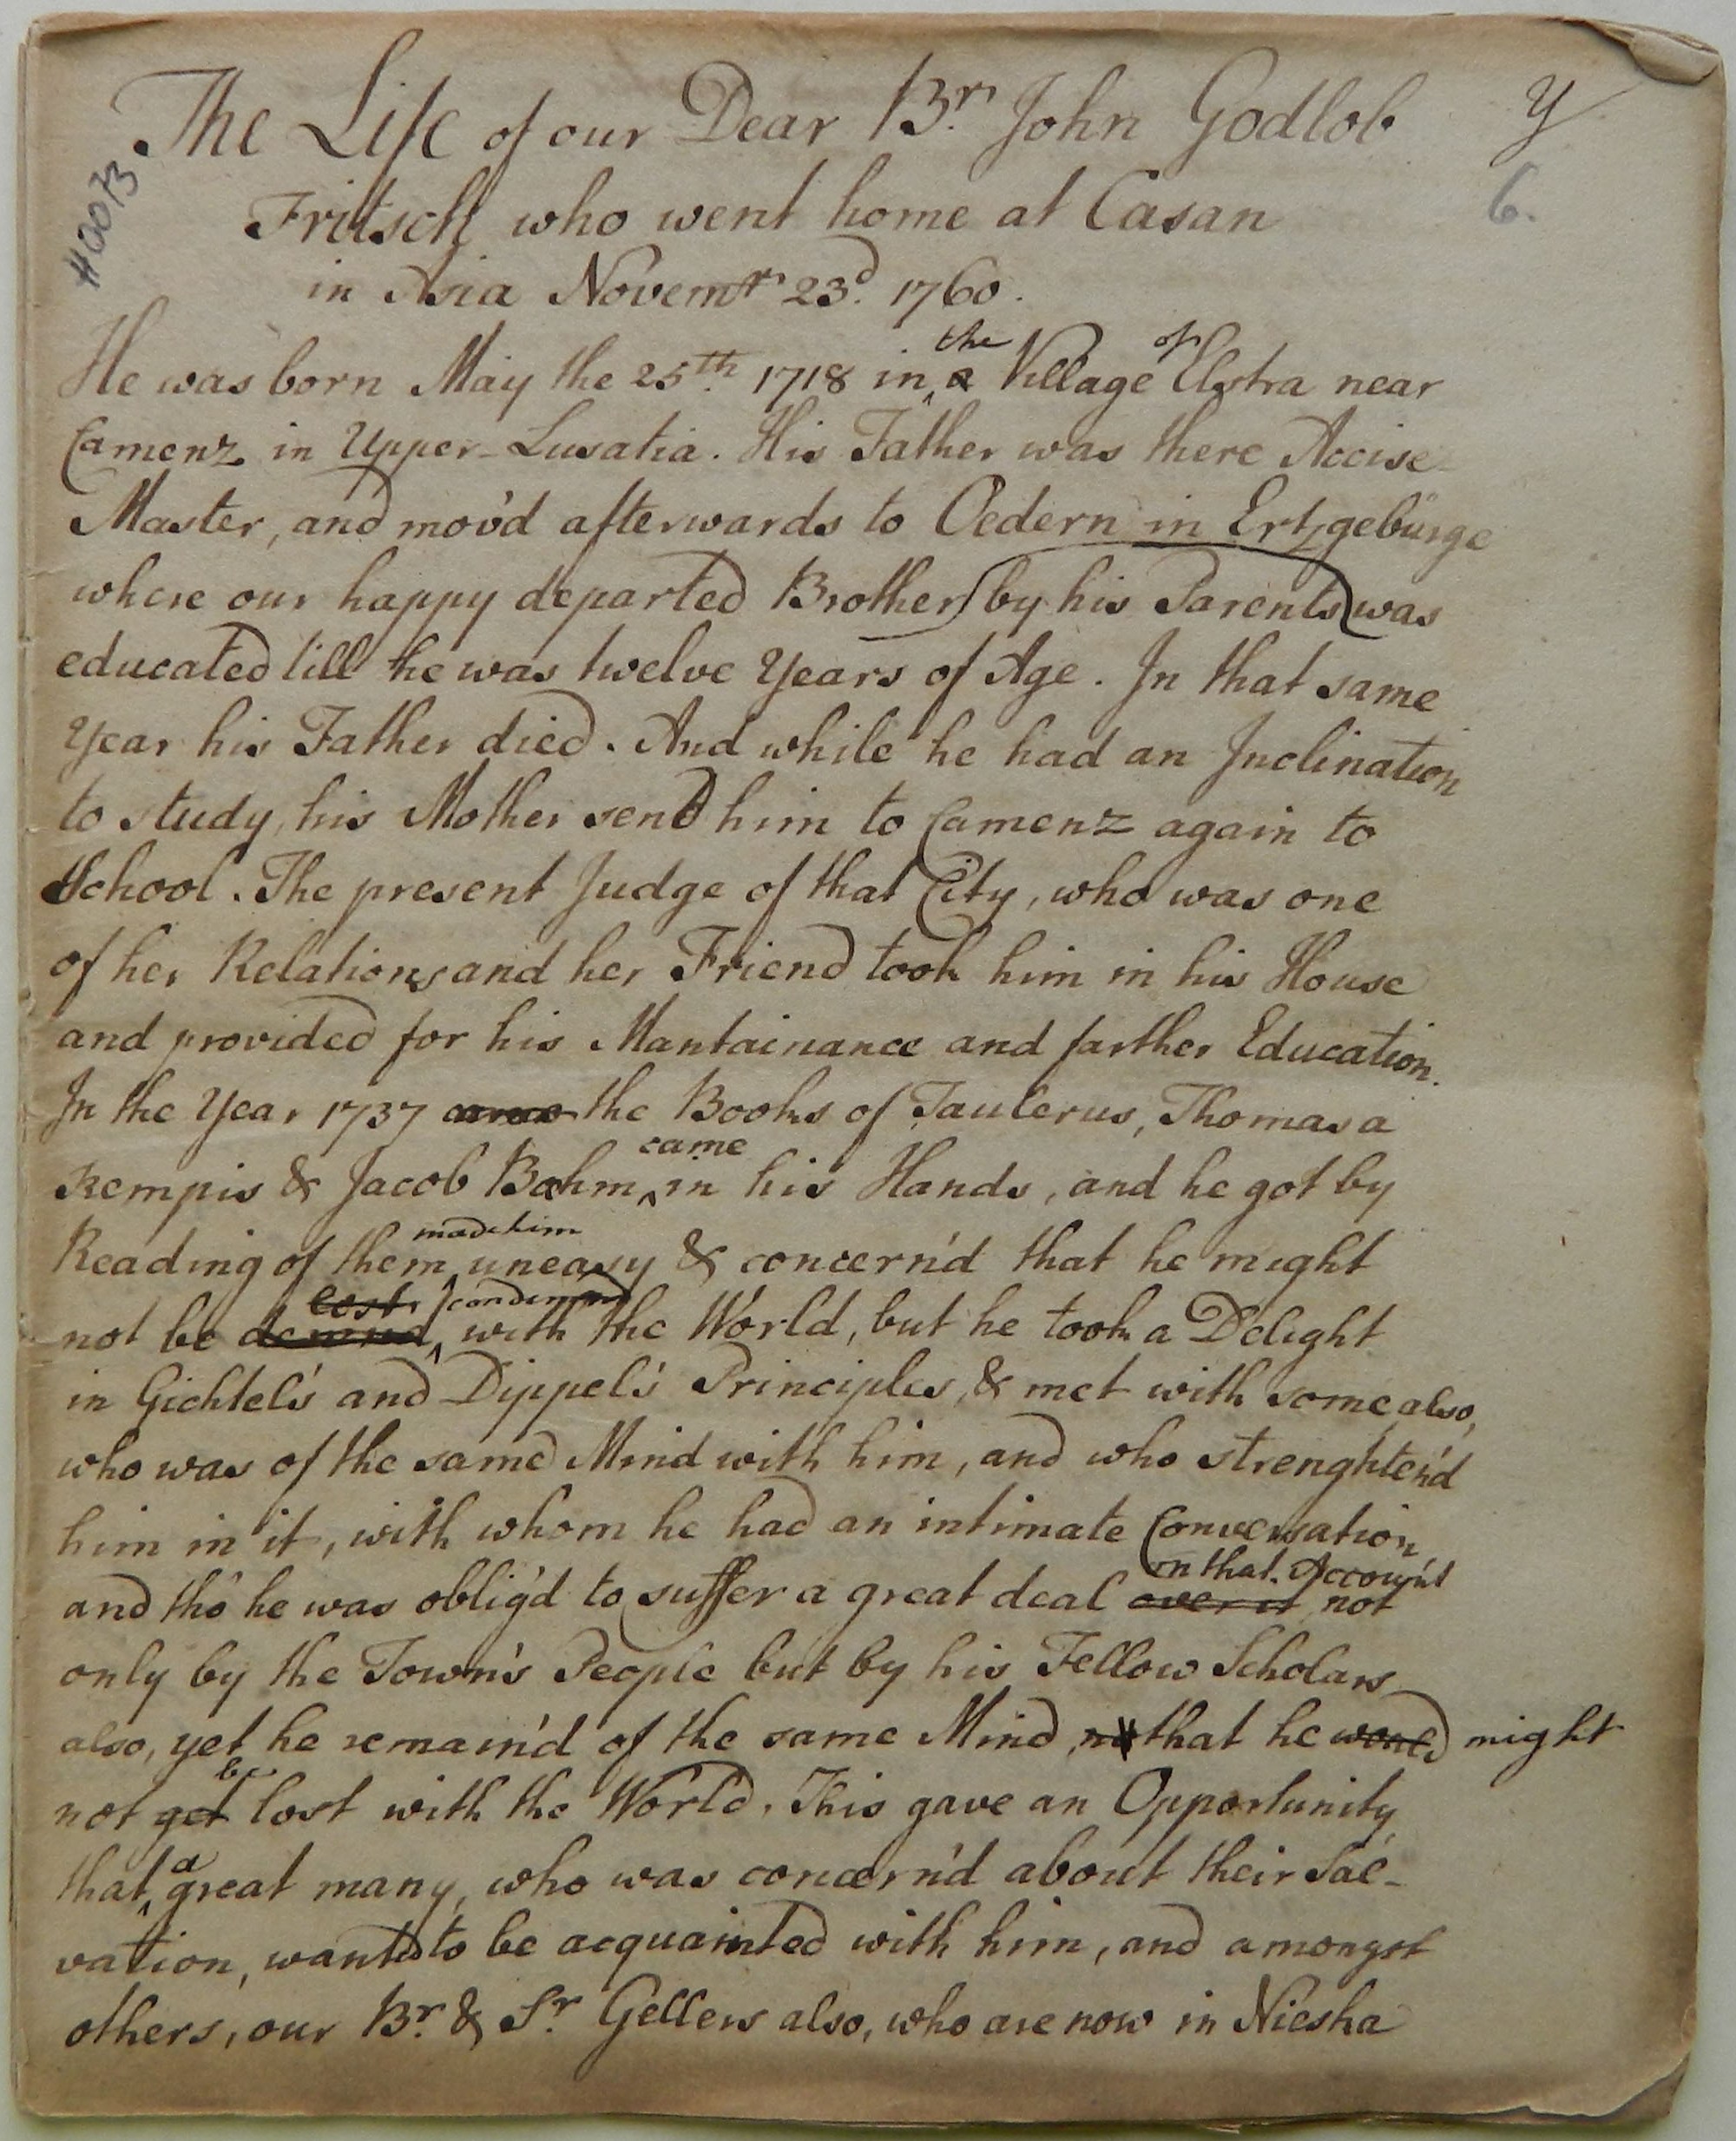 The Life of our Dear Br. John Godlob
Y
6.
#20073
Fritsch who went home at Casan
in Asia Novemr 23d. 1760.
the of
He was born May the 25th. 1718 in a Village Elstra near
Camenz in Upper-Lusatia. His Father was there Accise
Master, and mov'd afterwards to Oedern in Ertzgebürge
where our happy departed Brother (by his Parents) was
educated till he was twelve Years of Age. In that same
Year his Father died. And while he had an Inclination
to study, his Mother send him to Camenz again to
School. The present Judge of that City, who was one
of her Relations and her Friend took him in his House
and provided for his Mantainance and farther Education.
In the Year 1737 came the Books of Taulerus, Thomas a
came
Kempis & Jacob Bohm in his Hands, and he got by
made him
Reading of them uneasy & concern'd that he might
lost condemned
not be with the World, but he took a Delight
in Gichtel's and Dippel's Principles, & met with some also,
who was of the same Mind with him, and who strenghten'd
him in it, with whom he had an intimate Conversation
on that Account
and tho' he was oblig'd to suffer a great deal over it not
only by the Town's People but by his Fellow Scholars
also, yet he remain'd of the same Mind, that he would might
be
not get lost with the World. This gave an Opportunity
a
that great many, who was concern'd about their Sal-
vation, wanted to be acquainted with him, and amongst
others, our Br. & Sr. Gellers also, who are now in Niesha